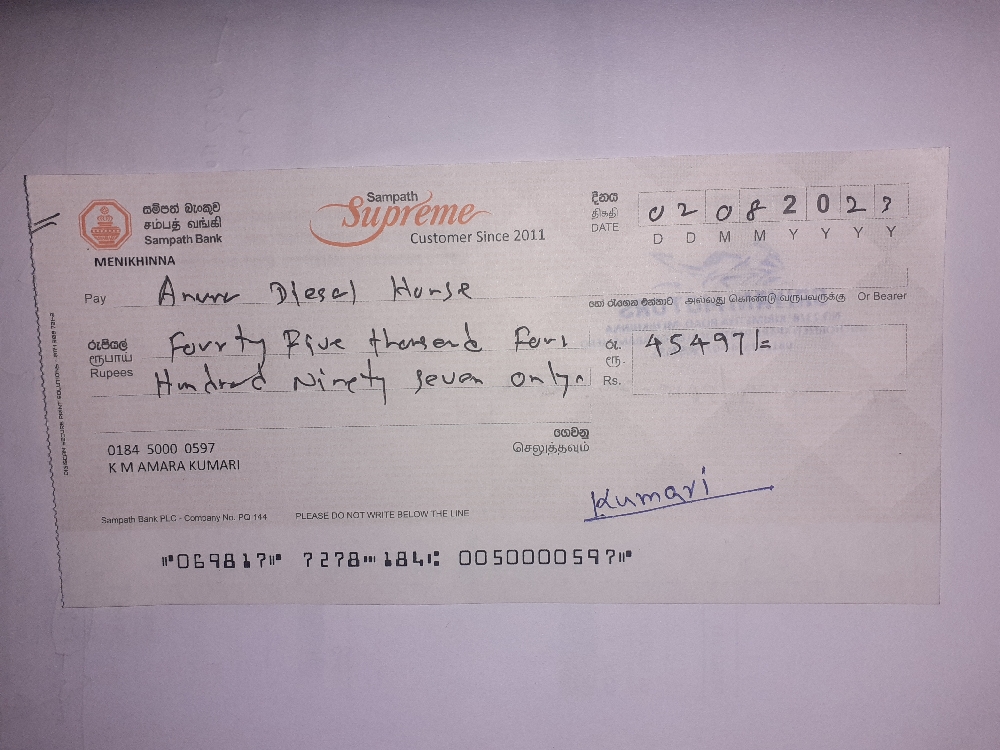 සම්පත් බැංකුව
சம்பத் வங்கி
Sampath Bank
MENIKHINNA
Sampath
Supreme
Customer Since 2011
දිනය
திகதி
DATE
0 2 0 8 2 0 2 3
D D M M Y Y Y Y
Pay Anura Diesal House හෝ රැගෙන එන්නාට அல்லது கொண்டு வருபவருக்கு Or Bearer
රුපියල්
ரூபாய்
Rupees
Fourty Five thousend Four
Hundrad Ninety seven only
රු.
ரூ.
Rs.
45497/=
0184 5000 0597
K M AMARA KUMARI
ගෙවනු
செலுத்தவும்
Kumari
Sampath Bank PLC - Company No. PQ 144 PLEASE DO NOT WRITE BELOW THE LINE
⑈069817⑈ 7278⑉184⑆ 0050000597⑈